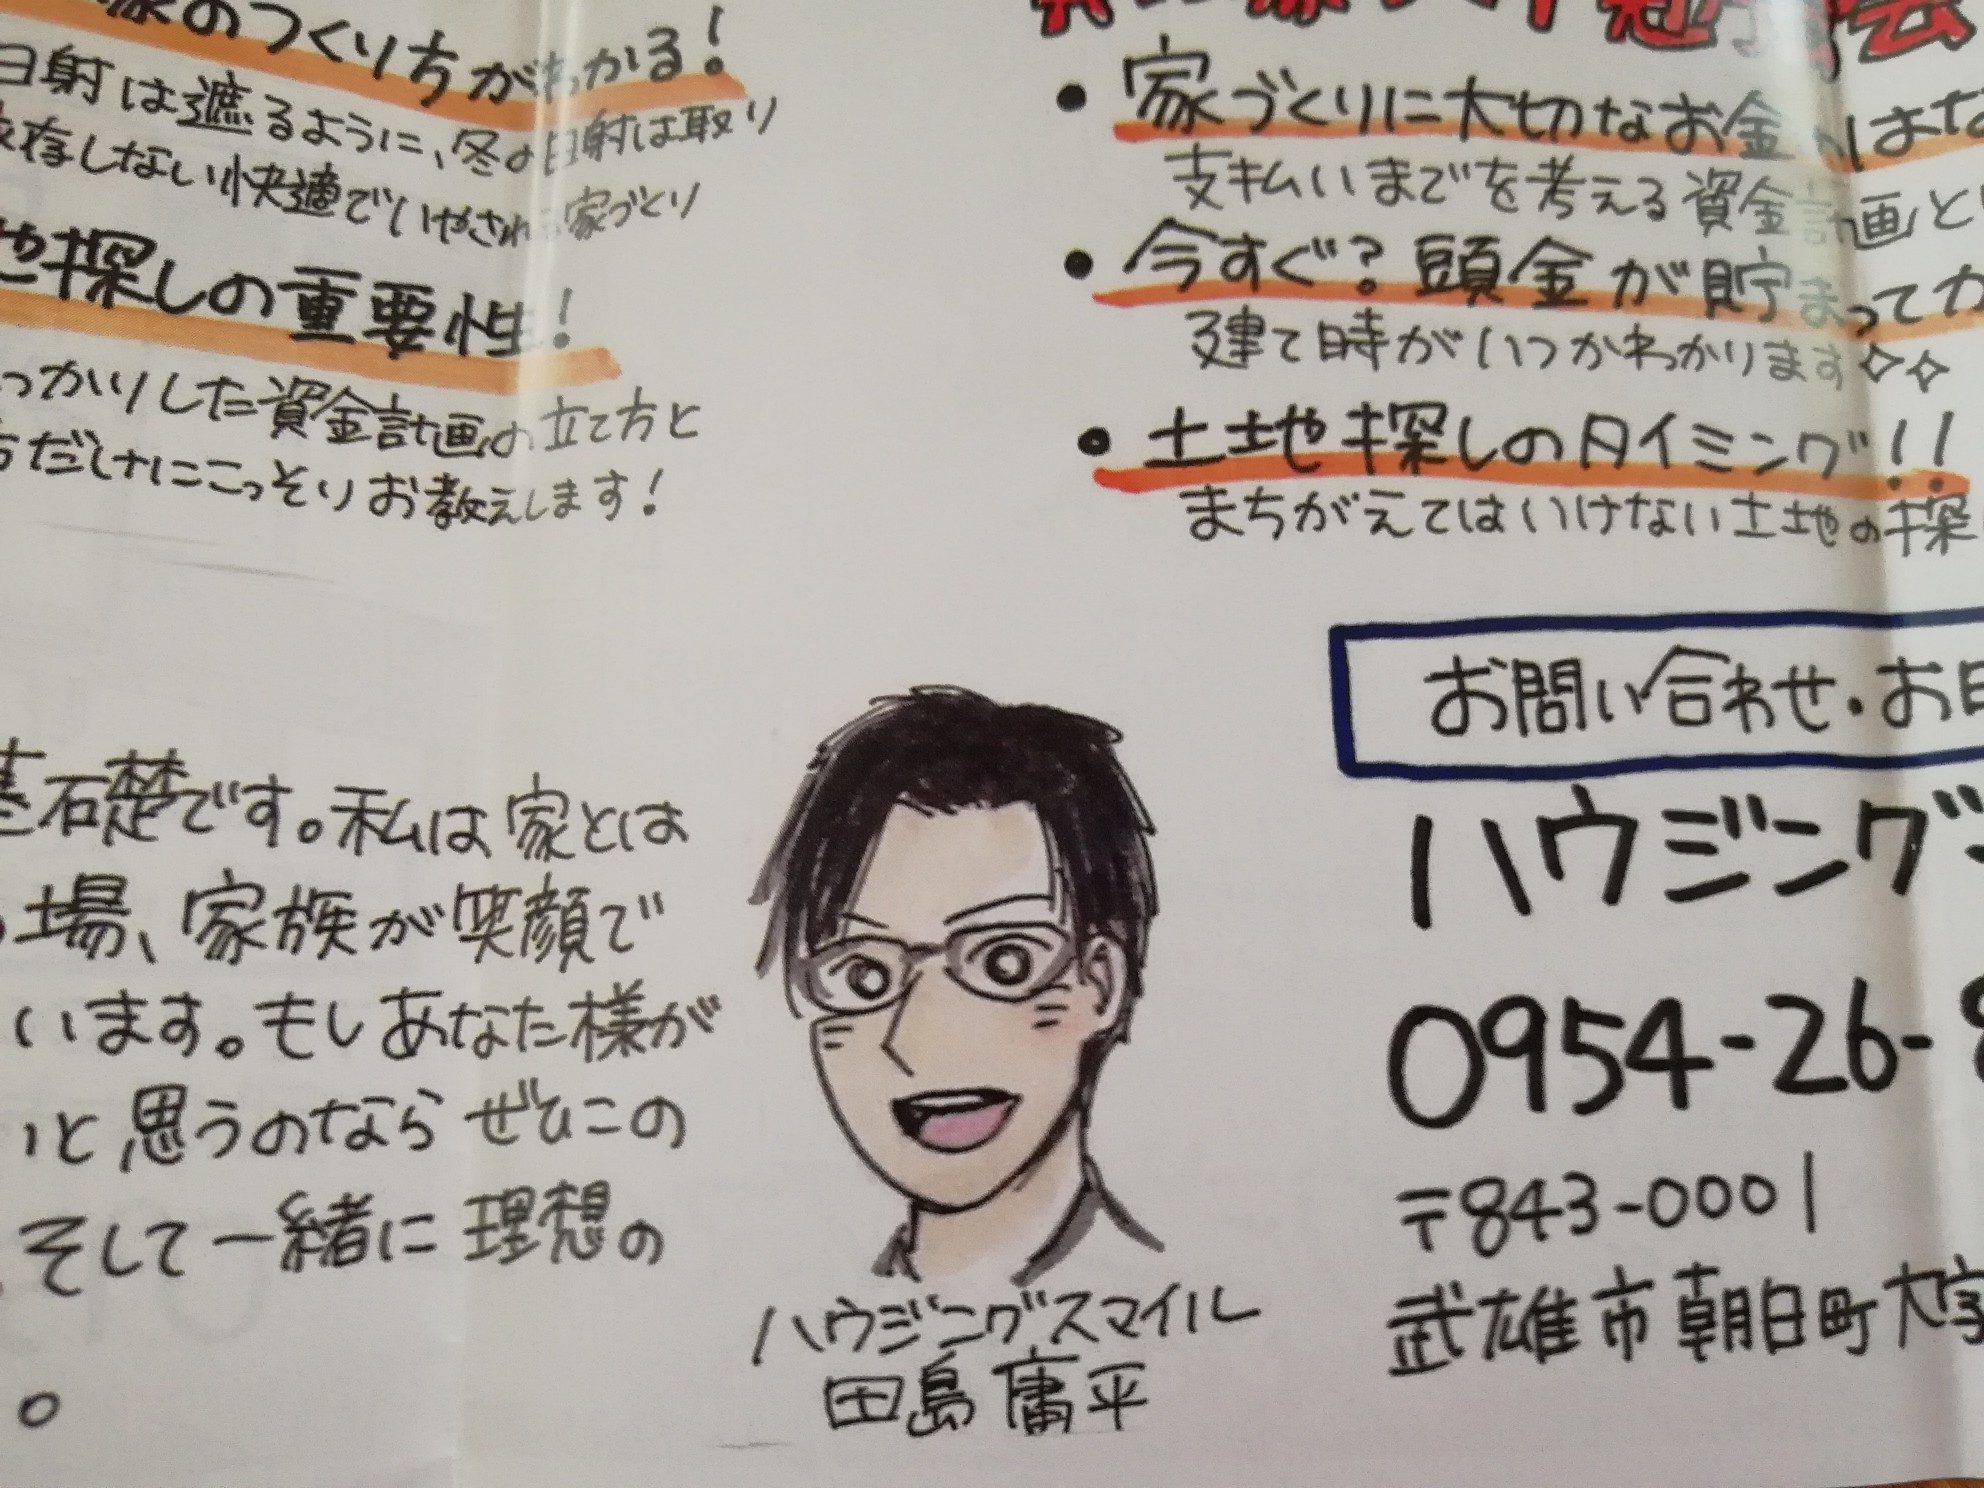 家のつくり方がわかる!
日射は遮るように、冬の日射は取り
存しない快適でいやされる家づくり
地探しの重要性!
っかりした資金計画の立て方と
方だけにこっそりお教えします!
基礎です。私は家とは
場、家族が笑顔で
います。もしあなた様が
と思うのなら ぜひこの
そして一緒に理想の
。
会
• 家づくりに大切なお金のはな
支払いまでを考える資金計画と
• 今すぐ?頭金が貯まってか
建て時がいつかわかります✧✧
• 土地探しのタイミング!!
まちがえてはいけない土地の探
お問い合わせ・お
ハウジング
0954-26-8
〒843-0001
武雄市朝日町大字
ハウジングスマイル
田島 庸平